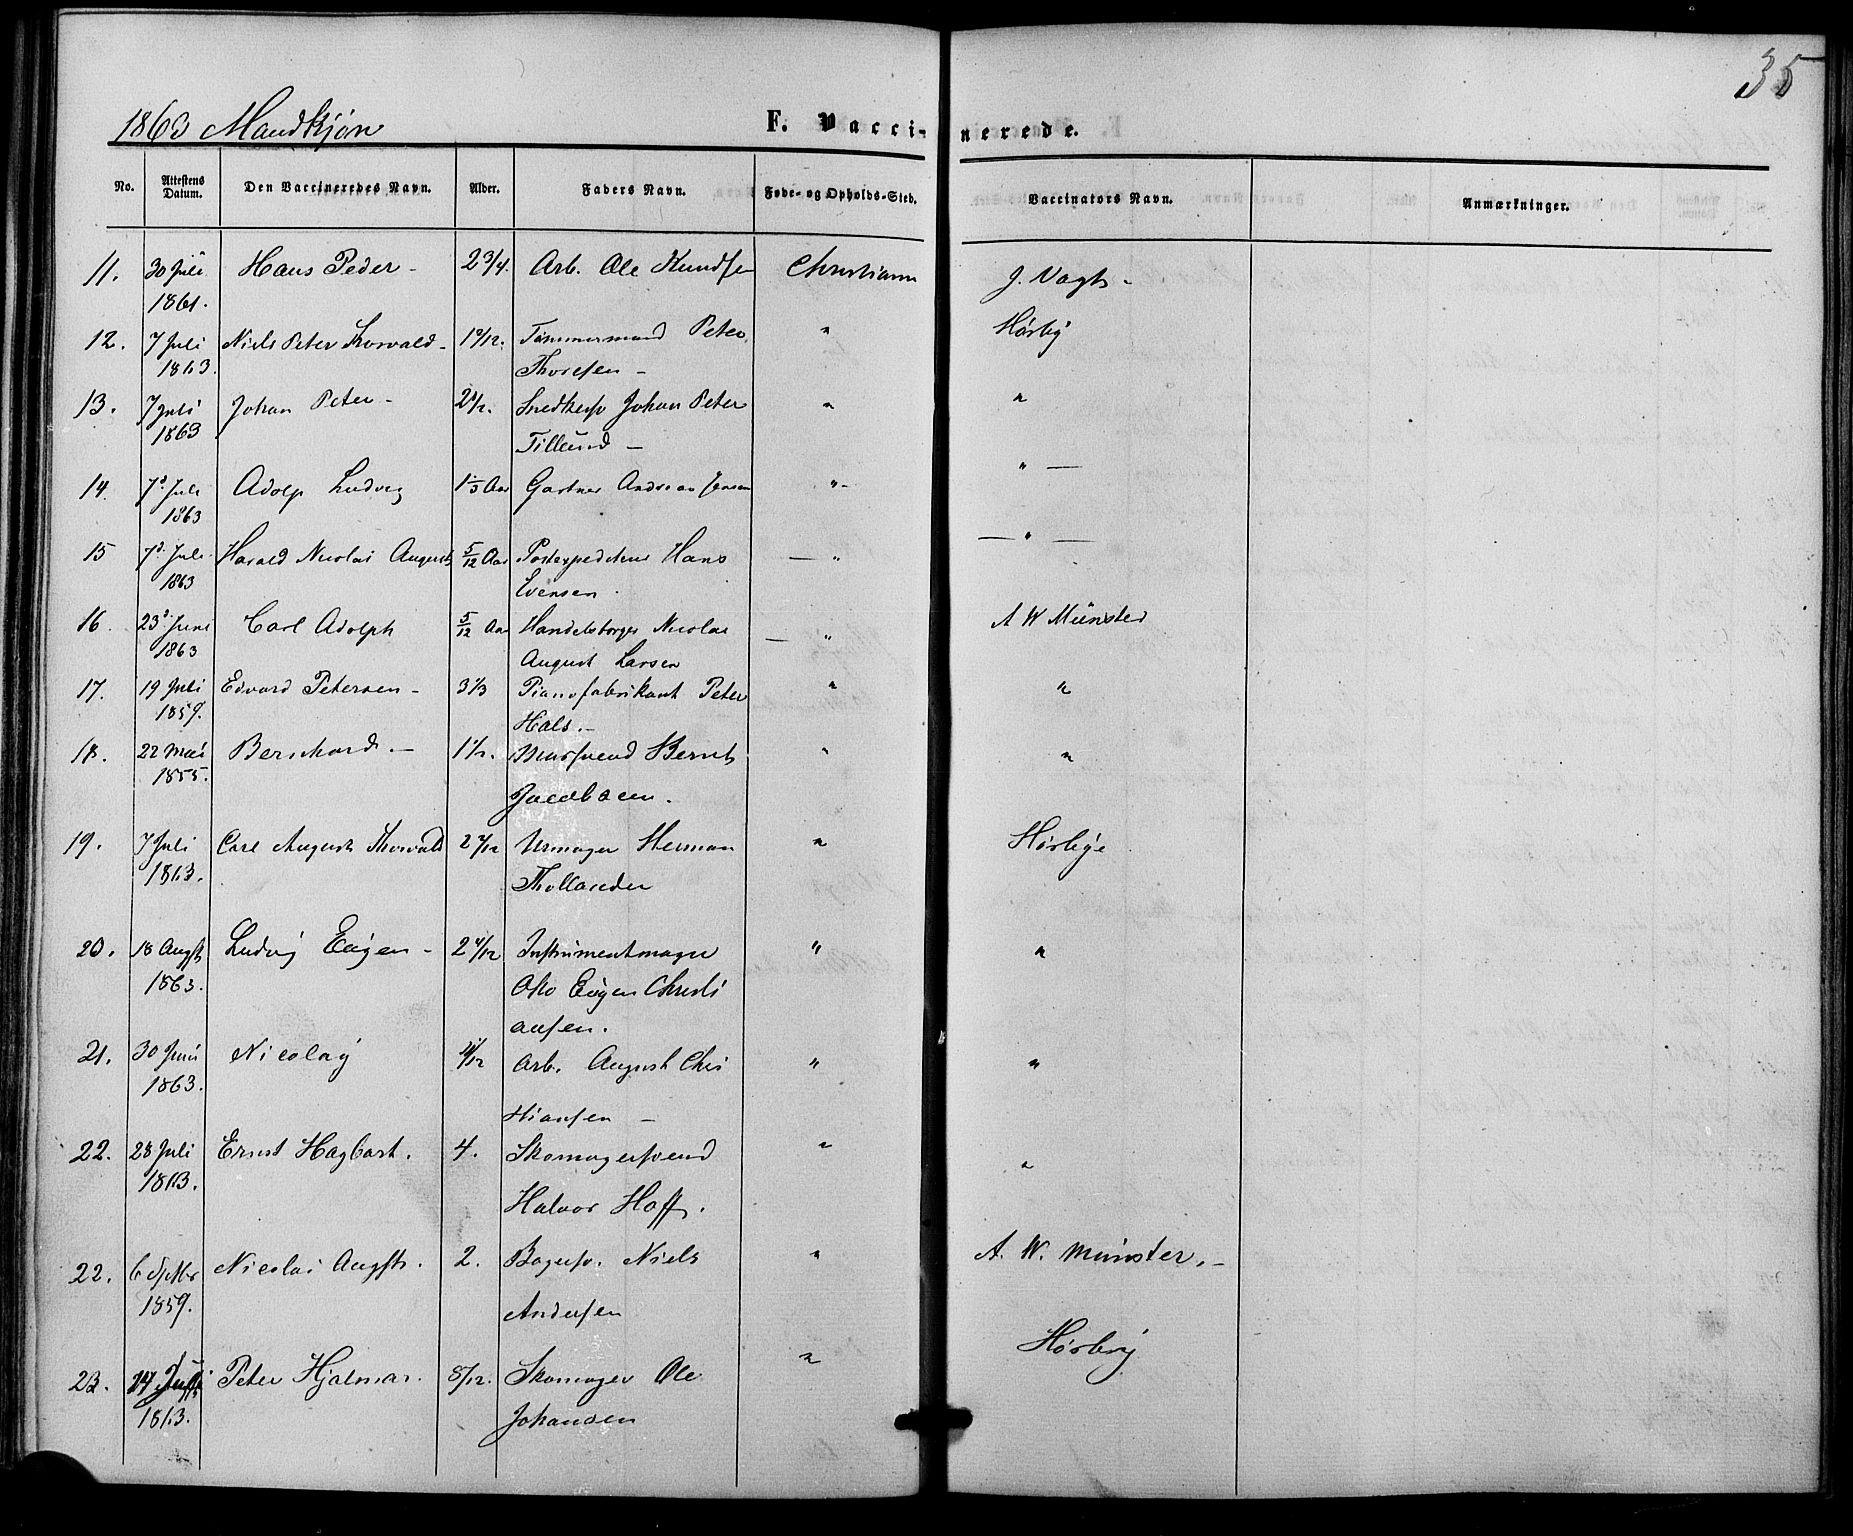 35
1863 Mandkjøn
F. Vaccinerede.
No. Attestens Datum. Den Vaccineredes Navn. Alder. Faders Navn. Føde- og Opholds-Sted. Vaccinators Navn. Anmærkninger.
11. 30 Juli Hans Peder - 2 3/4. Arb. Ole Knudsen Christiania J. Vogt -
1861.
12. 7 Juli Niels Peter Thorvald - 1 9/12. Tømmermand Peter " Hörby
1863. Thoresen -
13. 7 Juli Johan Peter - 2 1/2. Snedkersv Johan Peter " "
1863 Tillund -
14. 7d Juli Adolp Ludvig 1 1/3 Aar Gartner Andreas Jensen " - " -
1863
15 7d Juli Harald Nicolai August 5/12 Aar Postexpediteur Hans - " - " -
1863 Evensen.
16. 23d Juni Carl Adolph 5/12 Aar Handelsborger Nicolai - " A W Münster
1863 August Larsen
17. 19 Juli Edvard Petersen - 3 1/3 Pianofabrikant Peter " "
1859. Hals. -
18. 22 Mai Bernhard. - 1 1/2. Mursvend Bernt " "
1855. Jacobsen.
19. 7 Juli Carl August Thorvald 2 7/12 Urmager Herman " Hörbye
1863. Thollander
20. 18 Augst Ludvig Eugen - 2 4/12 Instrumentmager " "
1863. Otto Eugen Christi
ansen.
21. 30 Juni Nicolay 11/12 Arb. August Chri " "
1863. stiansen -
22. 28 Juli Ernst Hagbart. 4. Skomagersvend " "
1863. Halvor Hoff.
22. 6 Septbr Nicolai Augst. 2. Bagersv. Niels " A. W. Münster. -
1859. Andersen
23. 14 Peter Hjalmar. 8/12. Skomager Ole " Hörby
1863. Johansen